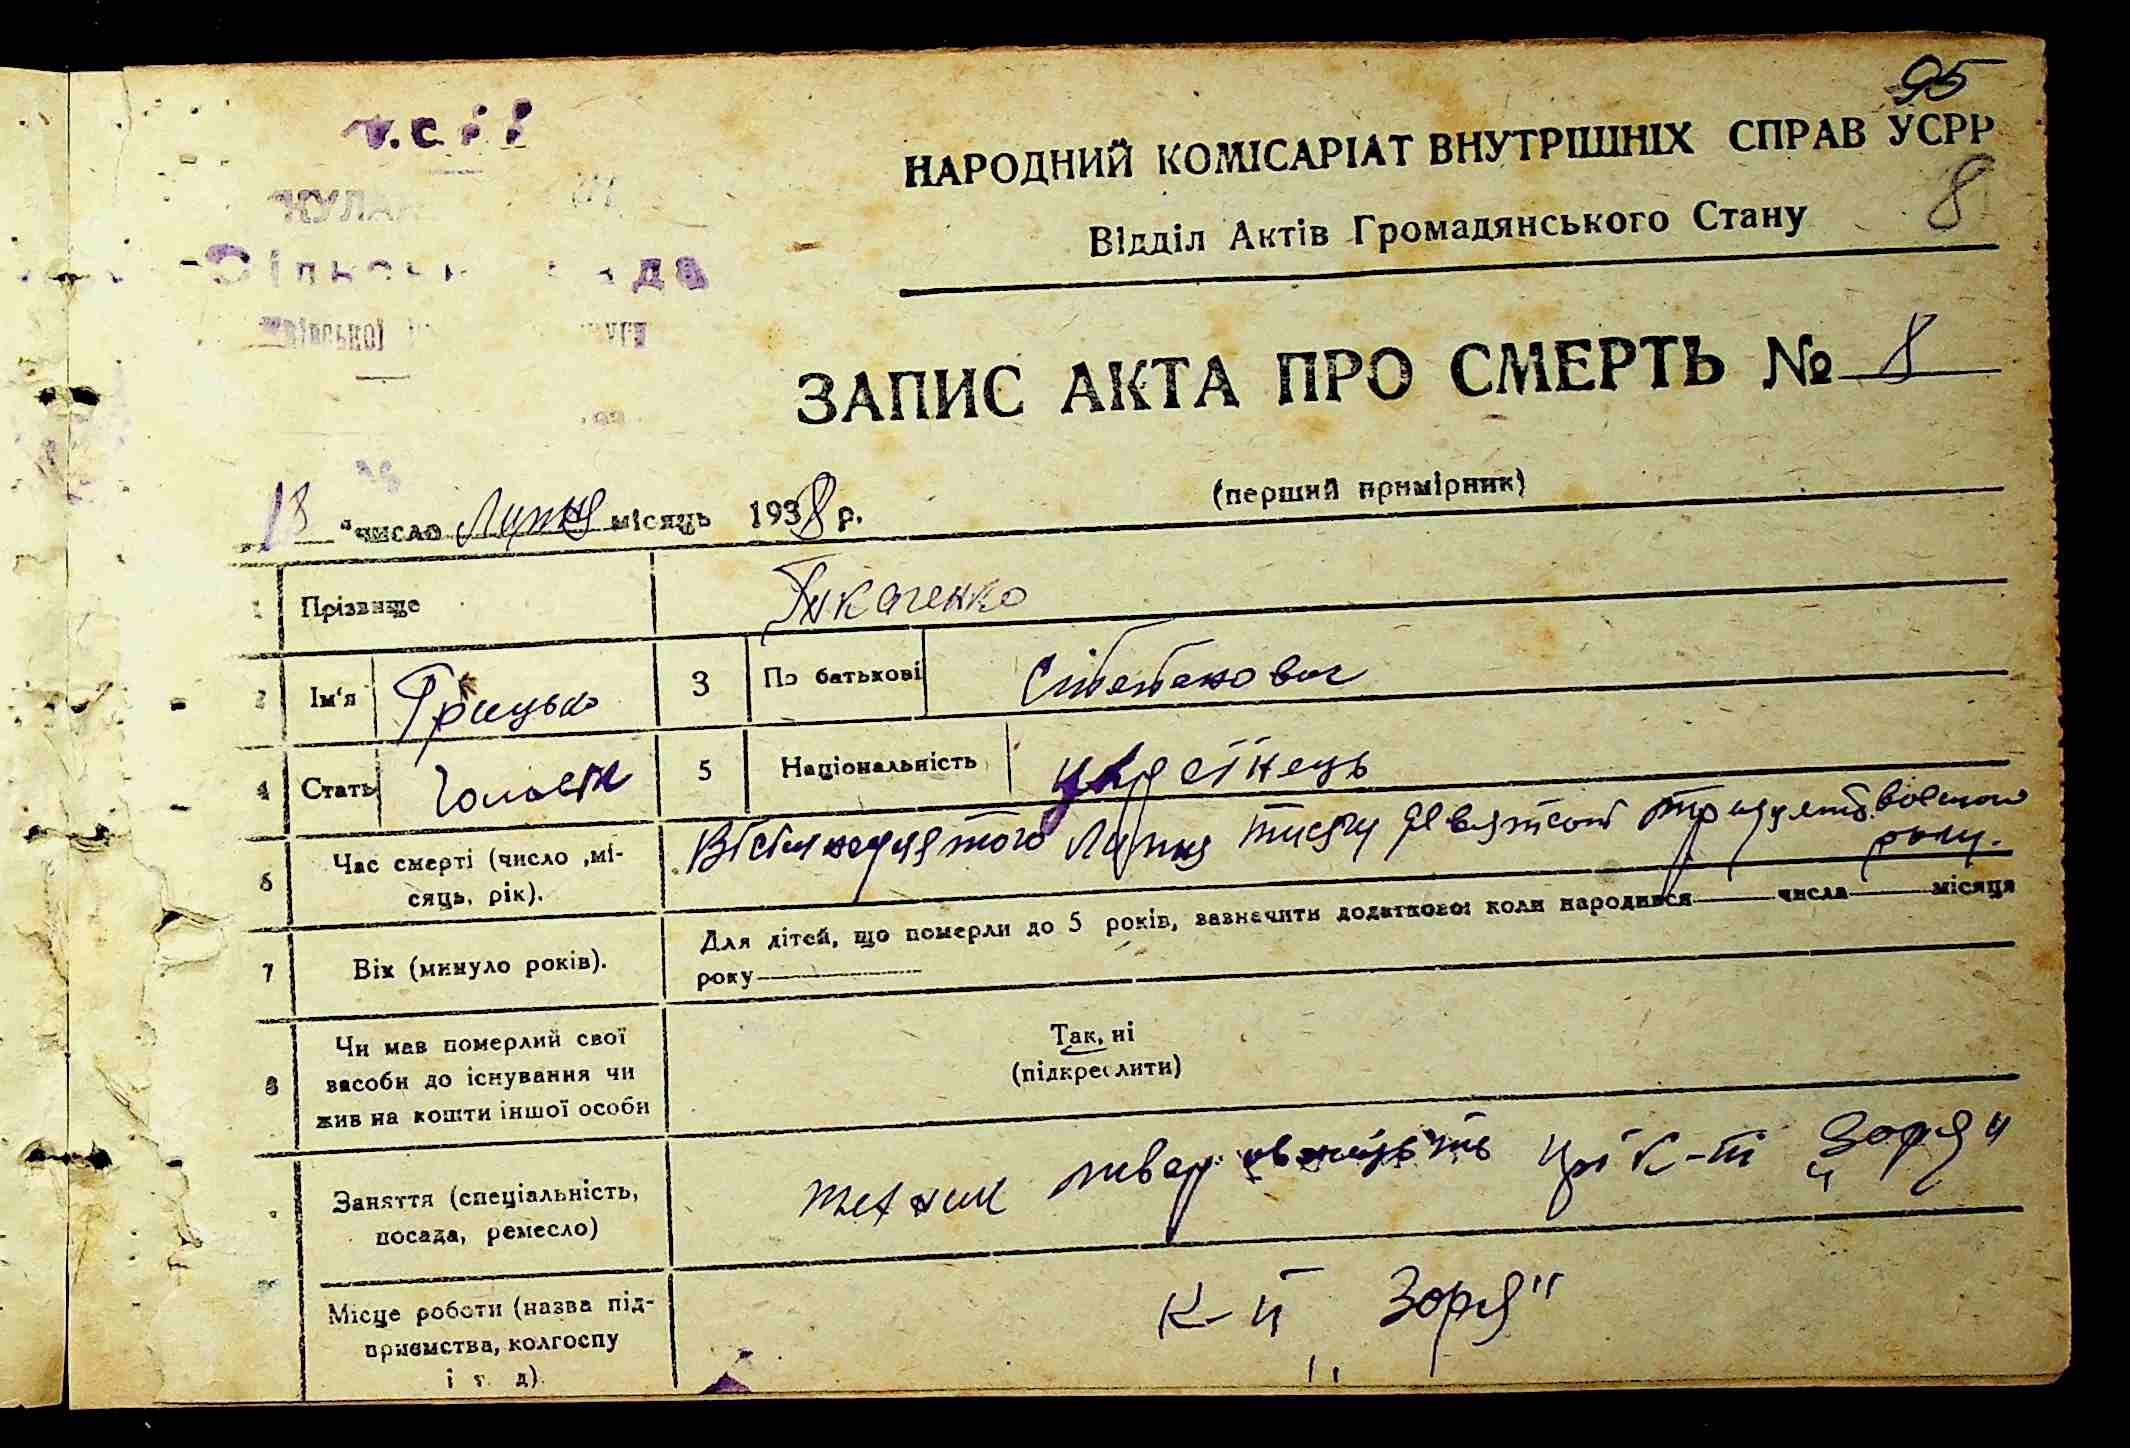 95
НАРОДНИЙ КОМІСАРІАТ ВНУТРІШНІХ СПРАВ УСРР
Відділ Актів Громадянського Стану
8
ЗАПИС АКТА ПРО СМЕРТЬ № 8
(перший примірник)
число Липня місяць 1938 р.
1 Прізвище Ткаченко
2 Ім'я Грицько 3 По батькові Степанович
4 Стать 5 Національність українець
6 Час смерті (число, мі-
сяць, рік).
Вісімнадцятого Липня тисячу девятсот тридцять восьмого
року.
7 Вік (минуло років).
Для дітей, що померли до 5 років, зазначити додатково: коли народився числа місяця
року
8 Чи мав померлий свої
засоби до існування чи
жив на кошти іншої особи
Так, ні
(підкреслити)
Заняття (спеціальність,
посада, ремесло)
технік твар. при к-ті „Зоря"
Місце роботи (назва під-
приємства, колгоспу
і т. д)
к-п „Зоря"